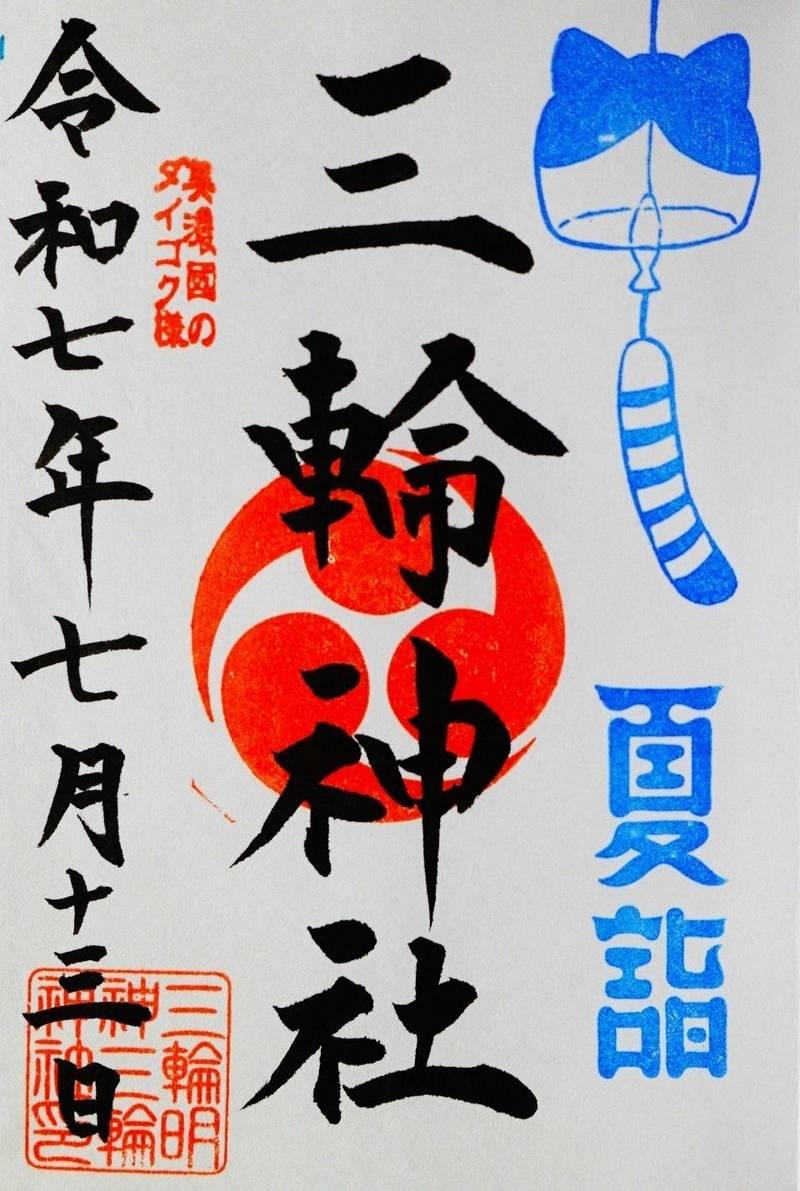 夏詣
三輪神社
美濃國の
ダイコク様
令和七年七月十三日
三輪明
神三輪
神社印